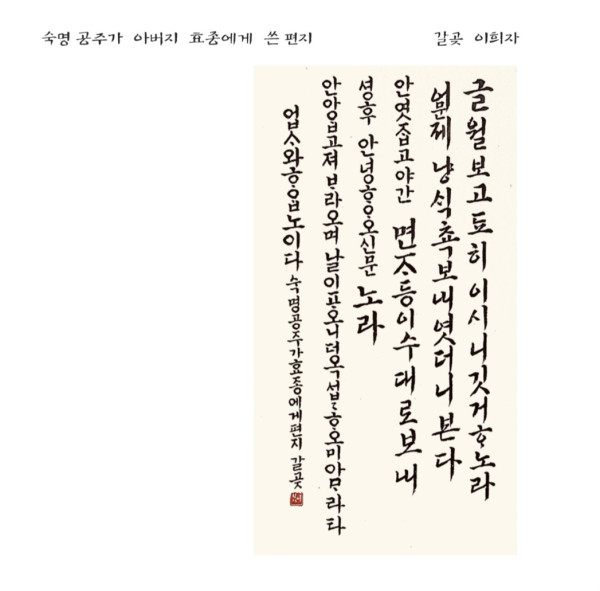 숙명 공주가 아버지 효종에게 쓴 편지 갈곶 이희자
글월보고됴히이시니깃거ᄒᆞ노라
어제 냥식쵹보내엿더니 본다
안엿ᄌᆞᆸ고야간 면ᄌᆞ등이수대로보내
셩후 안녕ᄒᆞᄋᆞ오신문 노라
안 고져 ᄇᆞ라오며 날이 더옥 아ᄆᆞ라타
업ᄉᆞ와ᄒᆞᄋᆞᆸ노이다 숙명공주가효종에게편지 갈곶